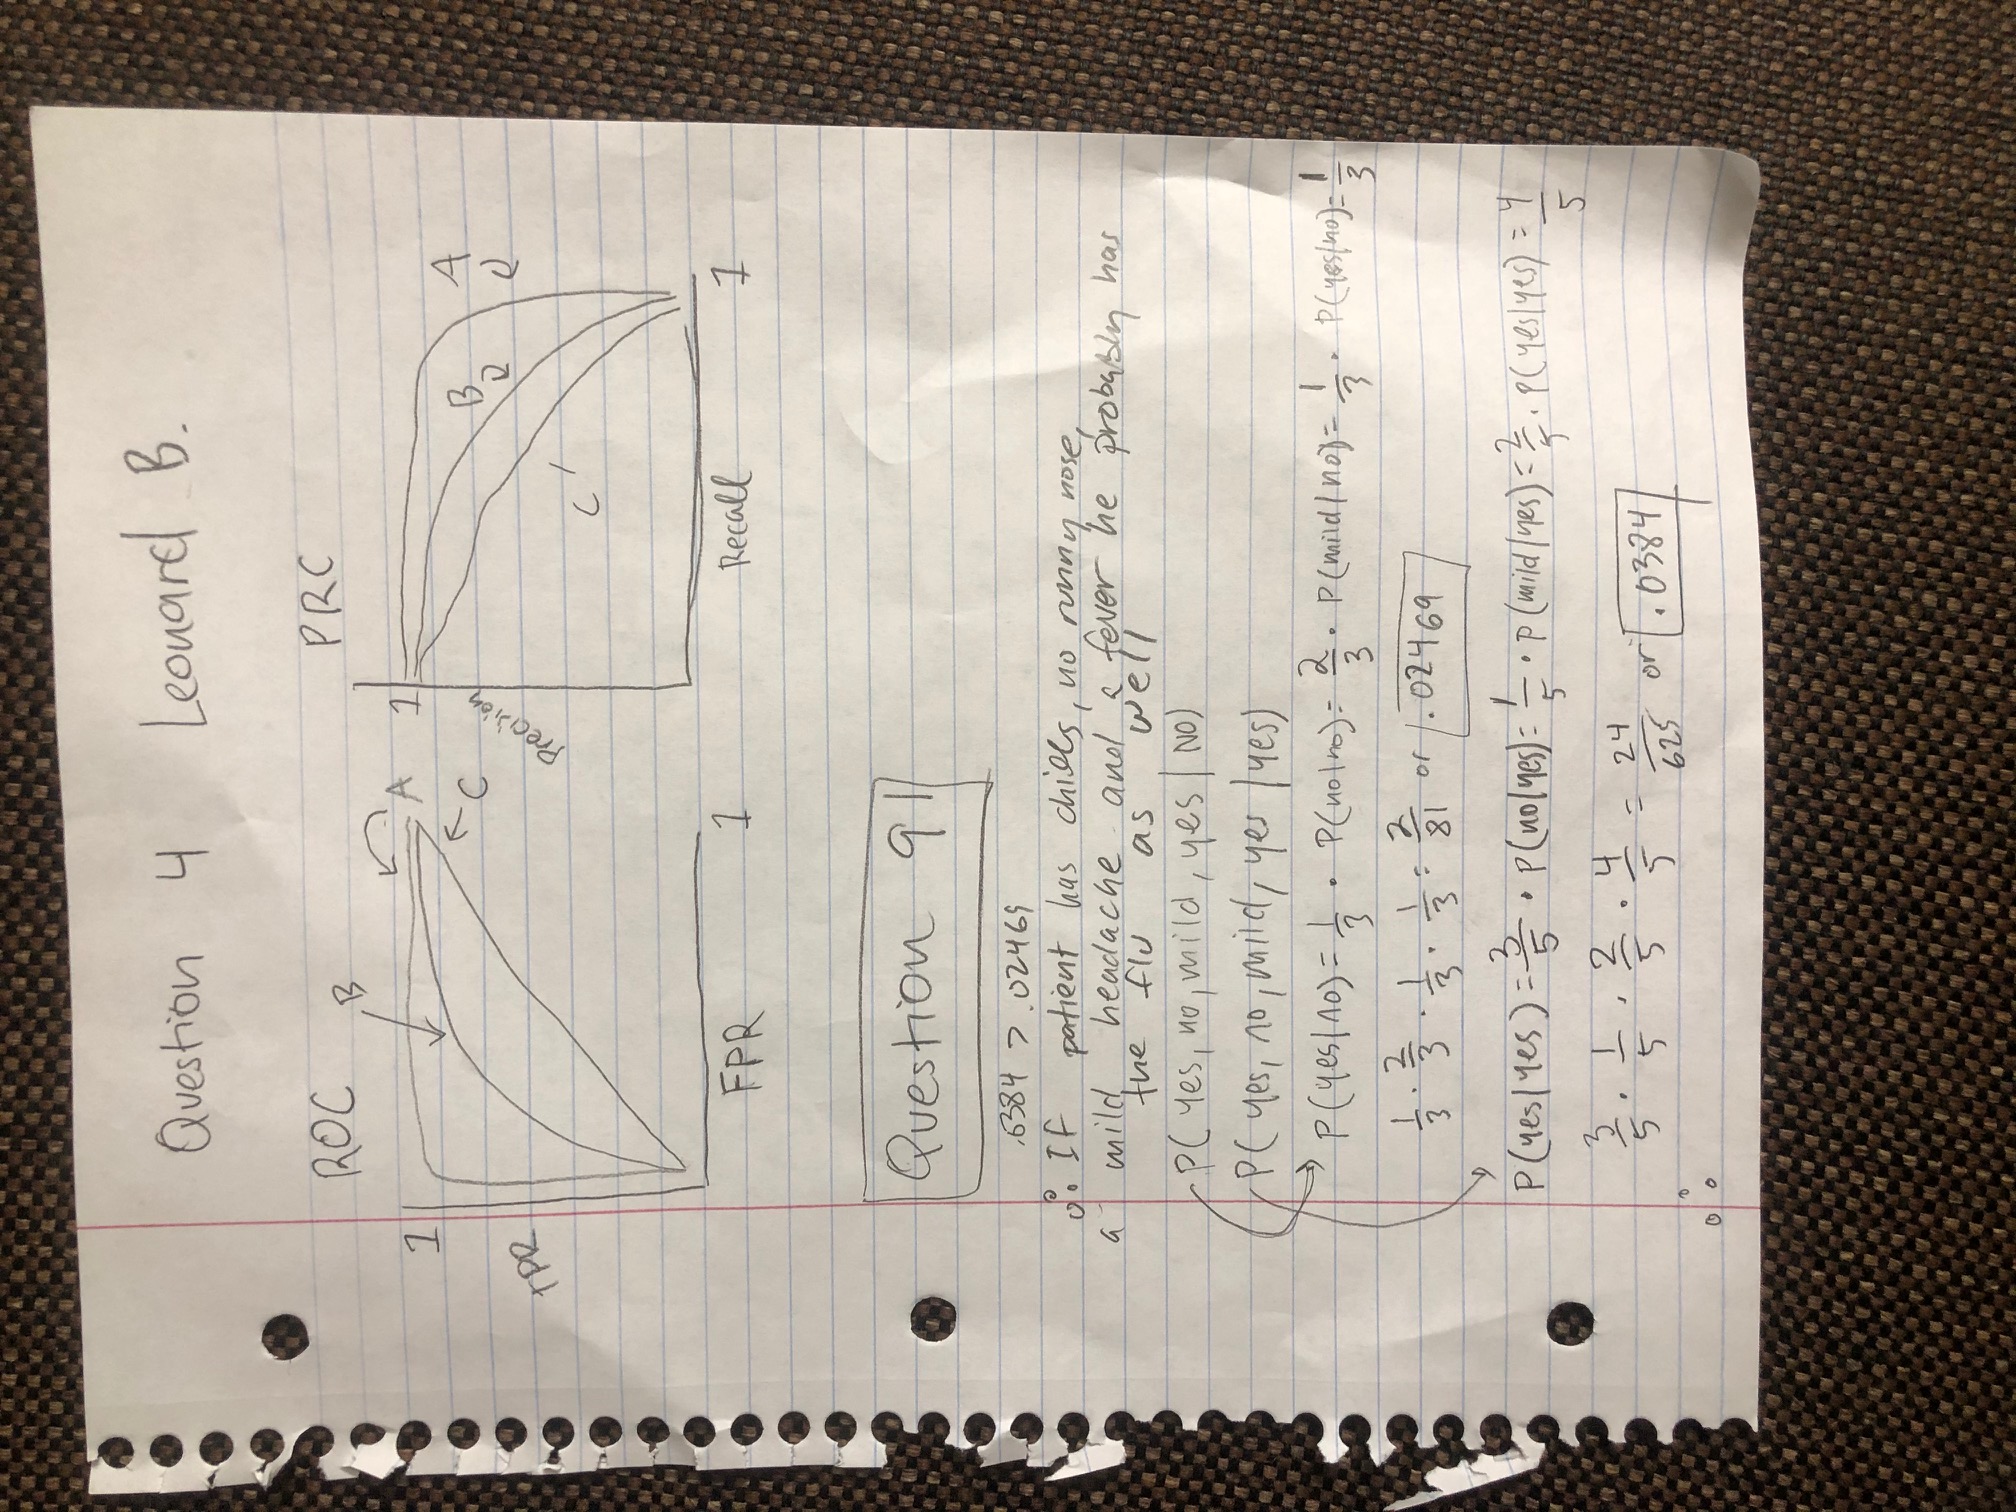 Question 4 Leonard B.
ROC
B
A
1
C
TPR
FPR 1
PRC
1
A
B
Precision
C
Recall 1
Question 91
.6384 > .02469
∴ If patient has chills, no runny nose,
a mild headache and a fever he probably has
the flu as well
P( yes, no, mild, yes | NO)
P( yes, no, mild, yes | yes)
P(yes|no)= 1/3 · P(no|no)= 2/3 · P(mild|no)= 1/3 · P(yes|no)= 1/3
1/3 · 2/3 · 1/3 · 1/3 = 2/81 or .02469
P(yes|yes)= 3/5 · P(no|yes)= 1/5 · P(mild|yes)= 2/5 · P(yes|yes) = 4/5
3/5 · 1/5 · 2/5 · 4/5 = 24/625 or .0384
∴